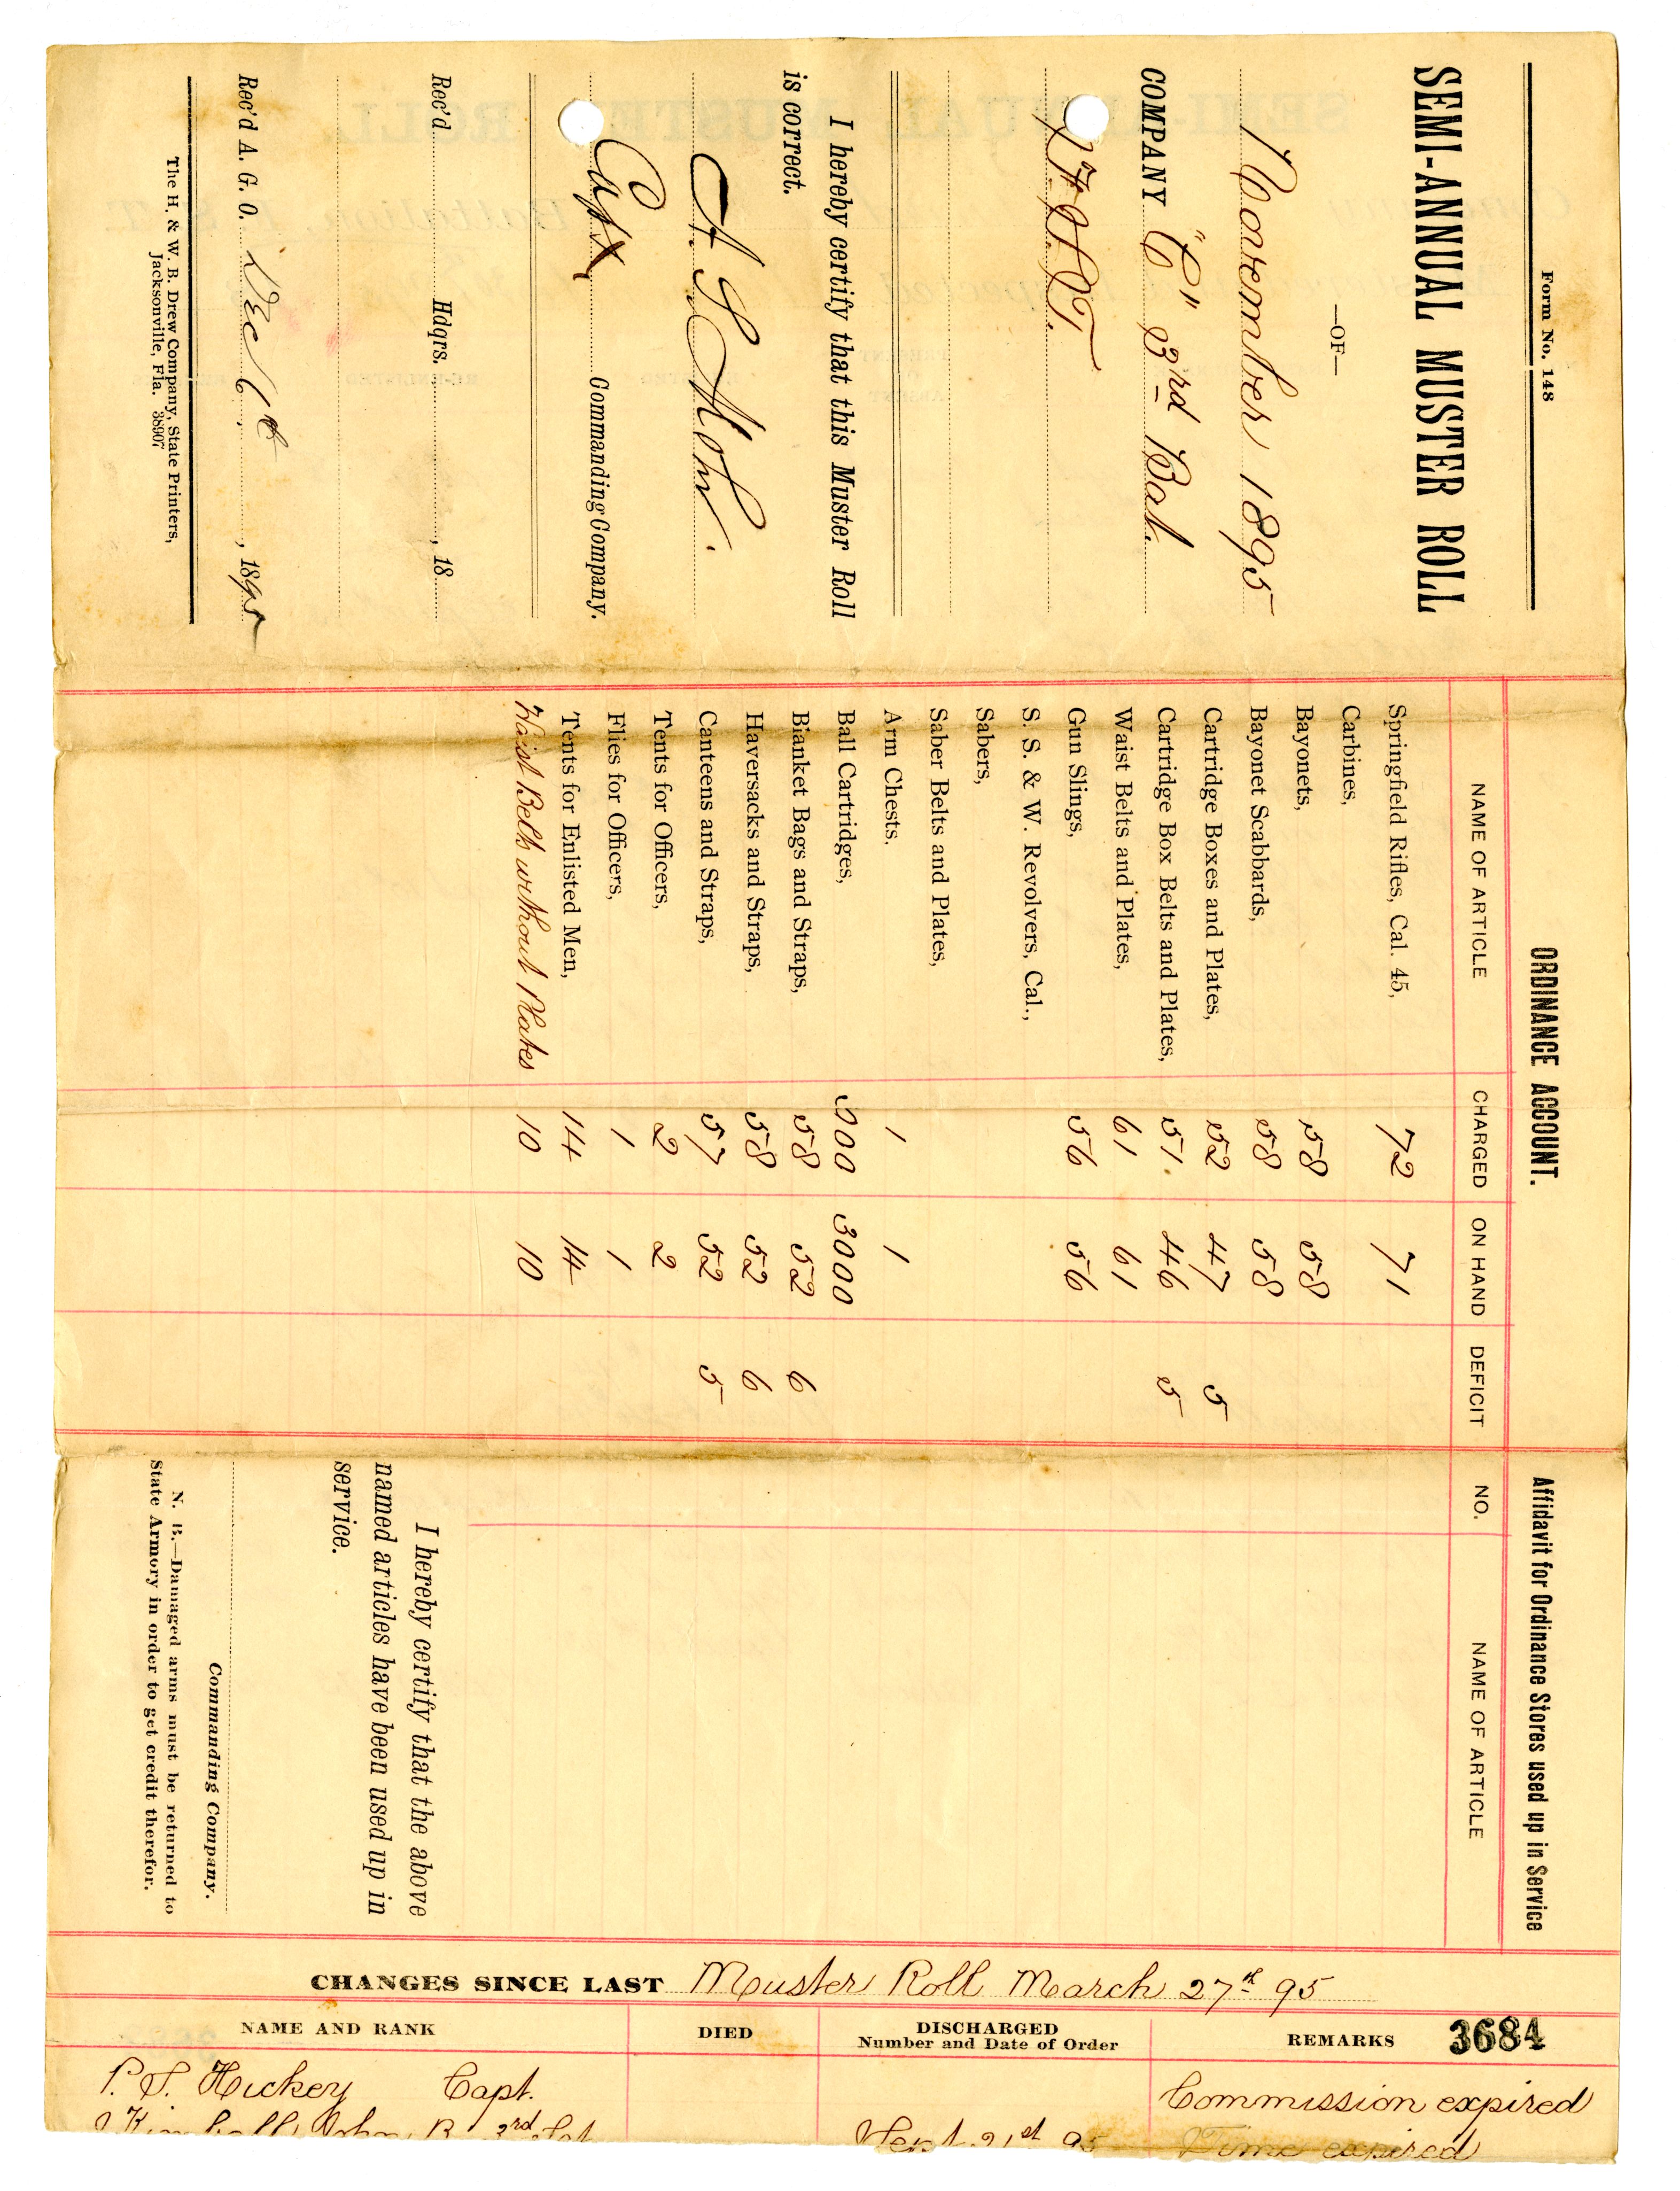 Form No. 148
SEMI-ANNUAL MUSTER ROLL
—OF—
November 1895
COMPANY "C" 3rd Bat.
F. S. T.
I hereby certify that this Muster Roll
is correct.
Capt. Commanding Company.
Rec'd Hdqrs. , 18
Rec'd A. G. O. Dec , 1895
The H. & W. B. Drew Company, State Printers,
Jacksonville, Fla. 38907
ORDINANCE ACCOUNT.
NAME OF ARTICLE CHARGED ON HAND DEFICIT
Springfield Rifles, Cal. 45, 72 71
Carbines,
Bayonets, 58 58
Bayonet Scabbards, 58 58
Cartridge Boxes and Plates, 52 47 5
Cartridge Box Belts and Plates, 51. 46 5
Waist Belts and Plates, 61 61
Gun Slings, 56 56
S. S. & W. Revolvers, Cal.,
Sabers,
Saber Belts and Plates,
Arm Chests. 1 1
Ball Cartridges, 3000
Bianket Bags and Straps, 58 52 6
Haversacks and Straps, 58 52 6
Canteens and Straps, 57 52 5
Tents for Officers, 2 2
Flies for Officers, 1 1
Tents for Enlisted Men, 14 14
Waist Belts without Plates 10 10
Affidavit for Ordinance Stores used up in Service
NO. NAME OF ARTICLE
I hereby certify that the above
named articles have been used up in
service.
Commanding Company.
N. B.—Damaged arms must be returned to
State Armory in order to get credit therefor.
CHANGES SINCE LAST Muster Roll March 27th 95
NAME AND RANK DIED DISCHARGED Number and Date of Order REMARKS 3684
P. S. Hickey Capt. Commission expired
Kimball John B 3rd Sgt Sept 21st 95 Time expired